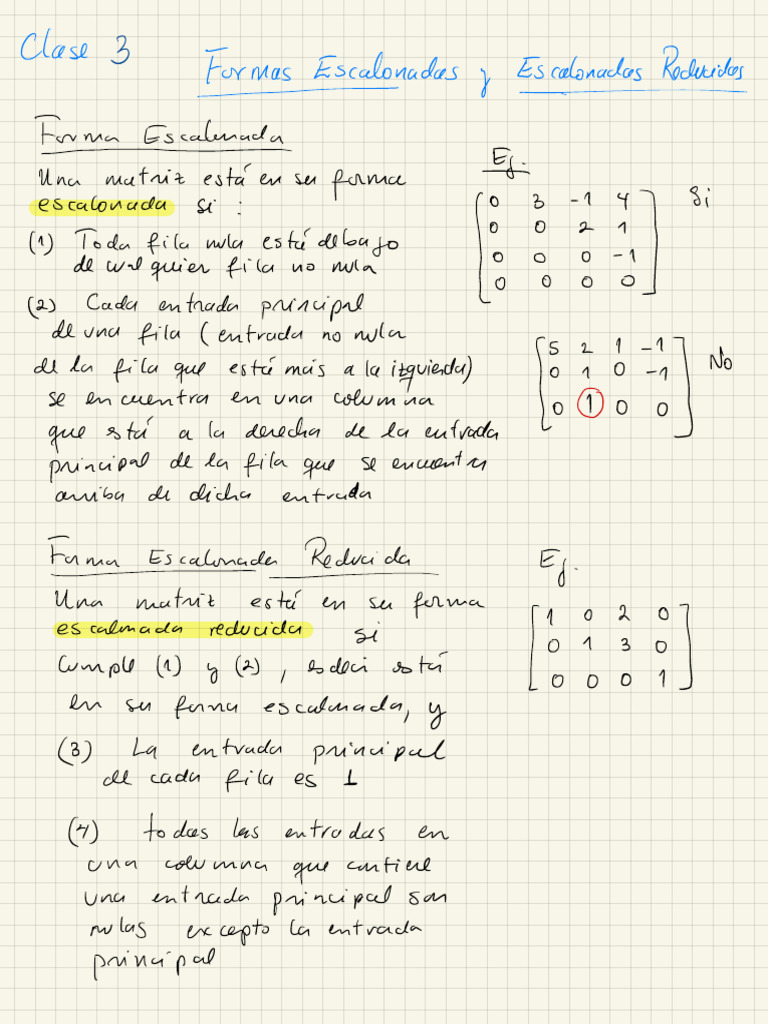 Clase 3
Formas Escalonadas y Escalonadas Reducidas
Forma Escalonada
Una matriz está en su forma
escalonada si :
(1) Toda fila nula está debajo
de cualquier fila no nula
(2) Cada entrada principal
de una fila (entrada no nula
de la fila que está más a la izquierda)
se encuentra en una columna
que está a la derecha de la entrada
principal de la fila que se encuentra
arriba de dicha entrada
Ej.
0 3 -1 4 Si
0 0 2 1
0 0 0 -1
0 0 0 0
5 2 1 -1 No
0 1 0 -1
0 1 0 0
Forma Escalonada Reducida
Una matriz está en su forma
escalonada reducida si
cumple (1) y (2), es decir está
en su forma escalonada, y
(3) La entrada principal
de cada fila es 1
(4) todas las entradas en
una columna que contiene
una entrada principal son
nulas excepto la entrada
principal
Ej.
1 0 2 0
0 1 3 0
0 0 0 1